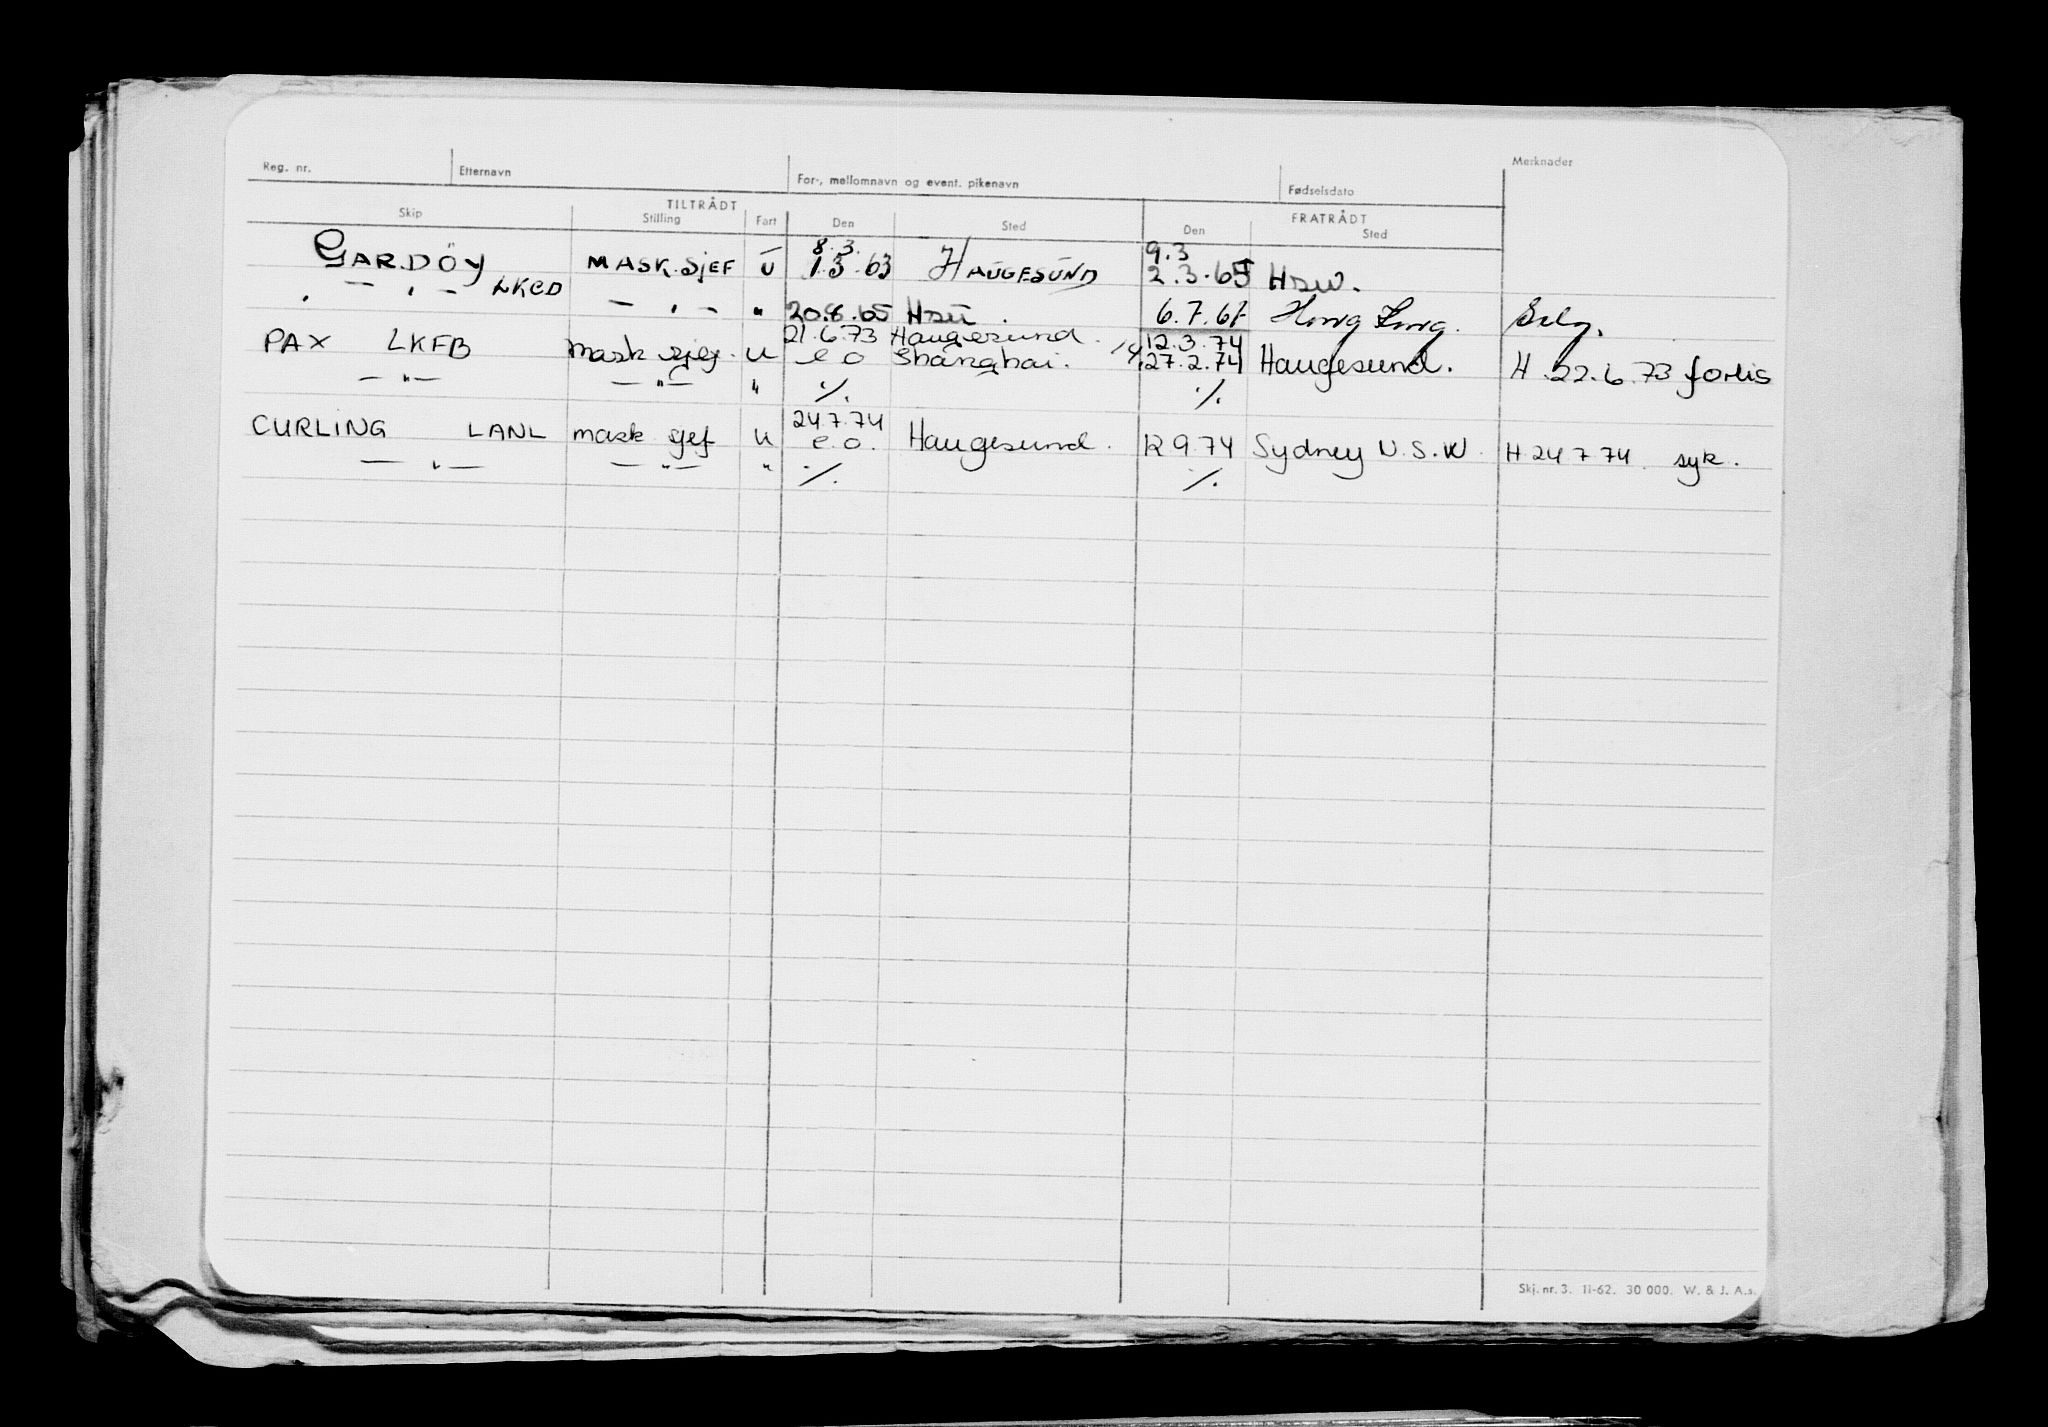 Reg. nr. Etternavn For-, mellomnavn og event. pikenavn Fødselsdato Merknader
TILTRÅDT FRATRÅDT
Skip Stilling Fart Den Sted Den Sted
8.3. 9.3
GARDÖY MASK.SJEF U 1.3.63 HAUGESUND 2.3.65 HSUND.
— " — LKCD — " — " 20.8.65 HSU 6.7.67 Hong Kong. Solg.
21.6.73 Haugesund. 12.3.74
PAX LKFB Mask sjef. U e o Shanghai. 14. 27.2.74 Haugesund. H. 22.6.73 forlis
— " — — " — " ./. ./.
24.7.74
CURLING LANL mask sjef U e.o. Haugesund. 12 9.74 Sydney N.S.W. H 24 7 74. syk.
— " — — " — " ./. ./.
Skj. nr. 3. 11-62. 30 000. W. & J. A.s.